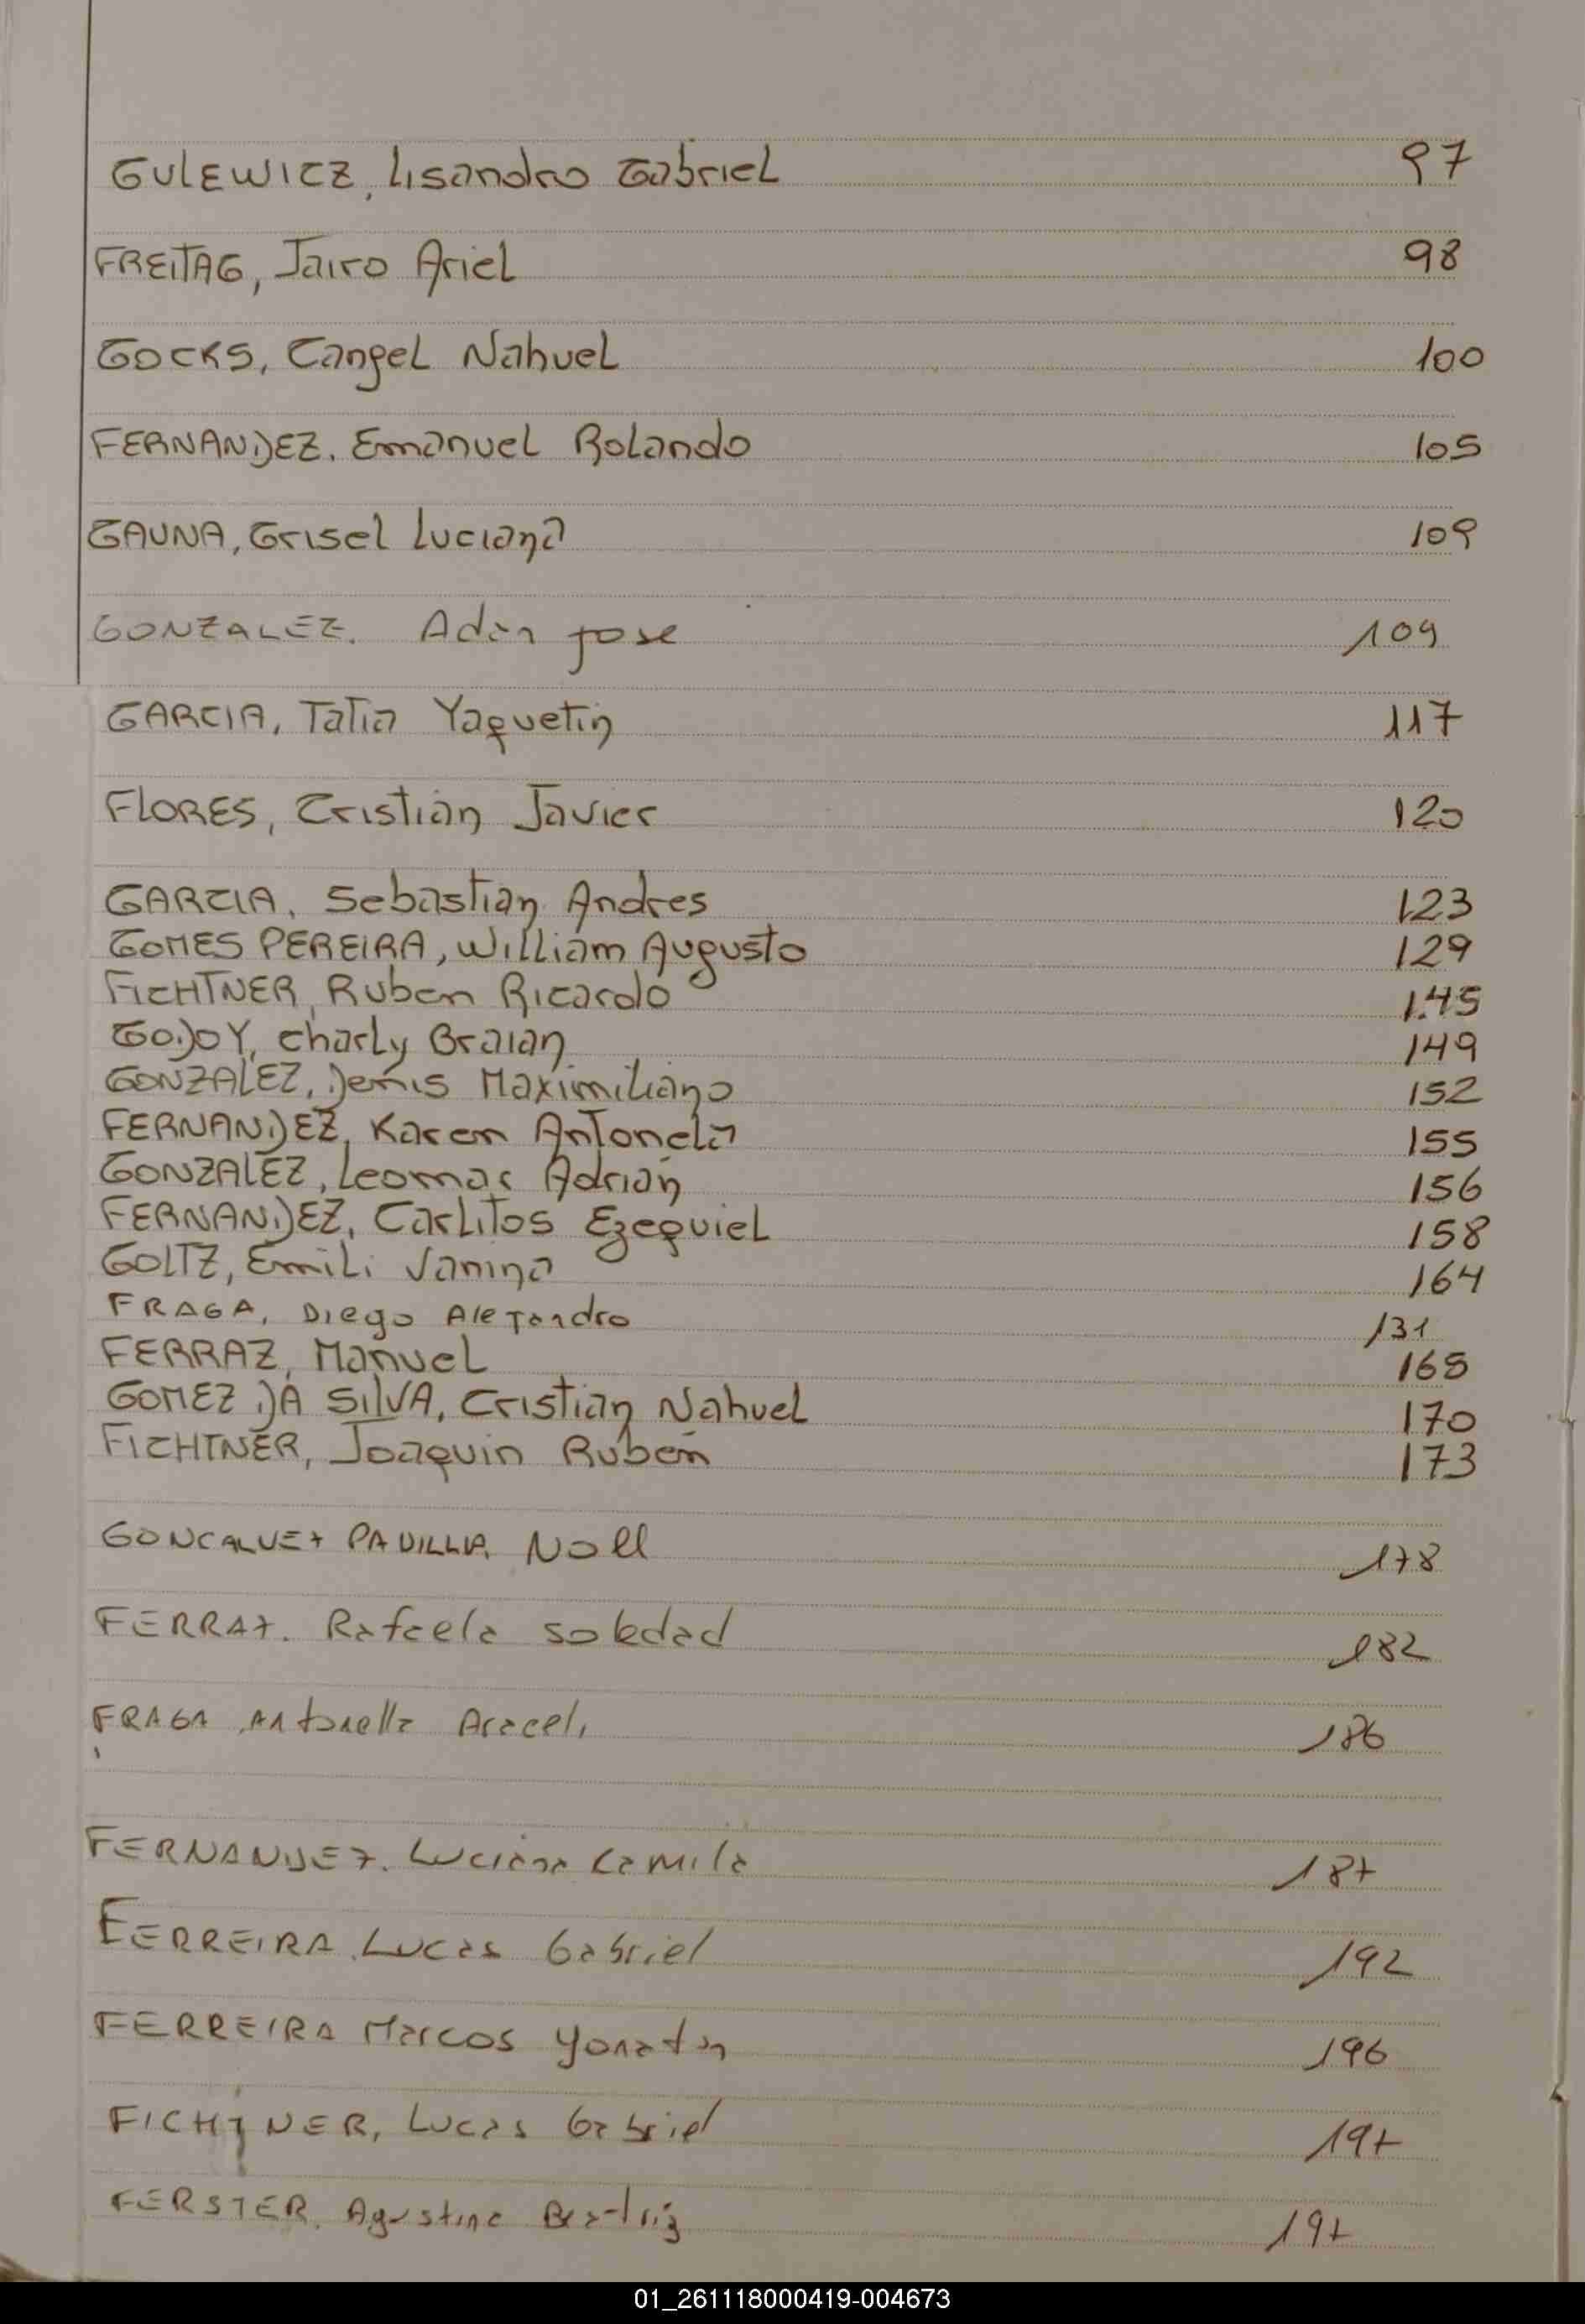 GULEWICZ, Lisandro Gabriel 97
FREITAG, Jairo Ariel 98
GOCKS, Cangel Nahuel 100
FERNANDEZ, Emanuel Rolando 105
GAUNA, Grisel Luciana 109
GONZALEZ. Adan Jose 109
GARCIA, Tatia Yaquetin 117
FLORES, Cristian Javier 120
GARCIA, Sebastian Andres 123
GOMES PEREIRA, William Augusto 129
FICHTNER, Ruben Ricardo 145
GODOY, Charly Braian 149
GONZALEZ, Denis Maximiliano 152
FERNANDEZ, Karen Antonela 155
GONZALEZ, Leomar Adrian 156
FERNANDEZ, Carlitos Ezequiel 158
GOLTZ, Emili Vanina 164
FRAGA, Diego Alejandro 131
FERRAZ, Manuel 168
GOMEZ DA SILVA, Cristian Nahuel 170
FICHTNER, Joaquin Ruben 173
GONCALVEZ Noell 178
FERRAZ. Rafaela Soledad 182
FRAGA Antonella Araceli 186
FERNANDEZ. Luciana Camila 187
FERREIRA. Lucas Gabriel 192
FERREIRA Marcos Yonatan 196
FICHTNER, Lucas Gabriel 197
FERSTER. Agustina Beatriz 197
01_261118000419-004673